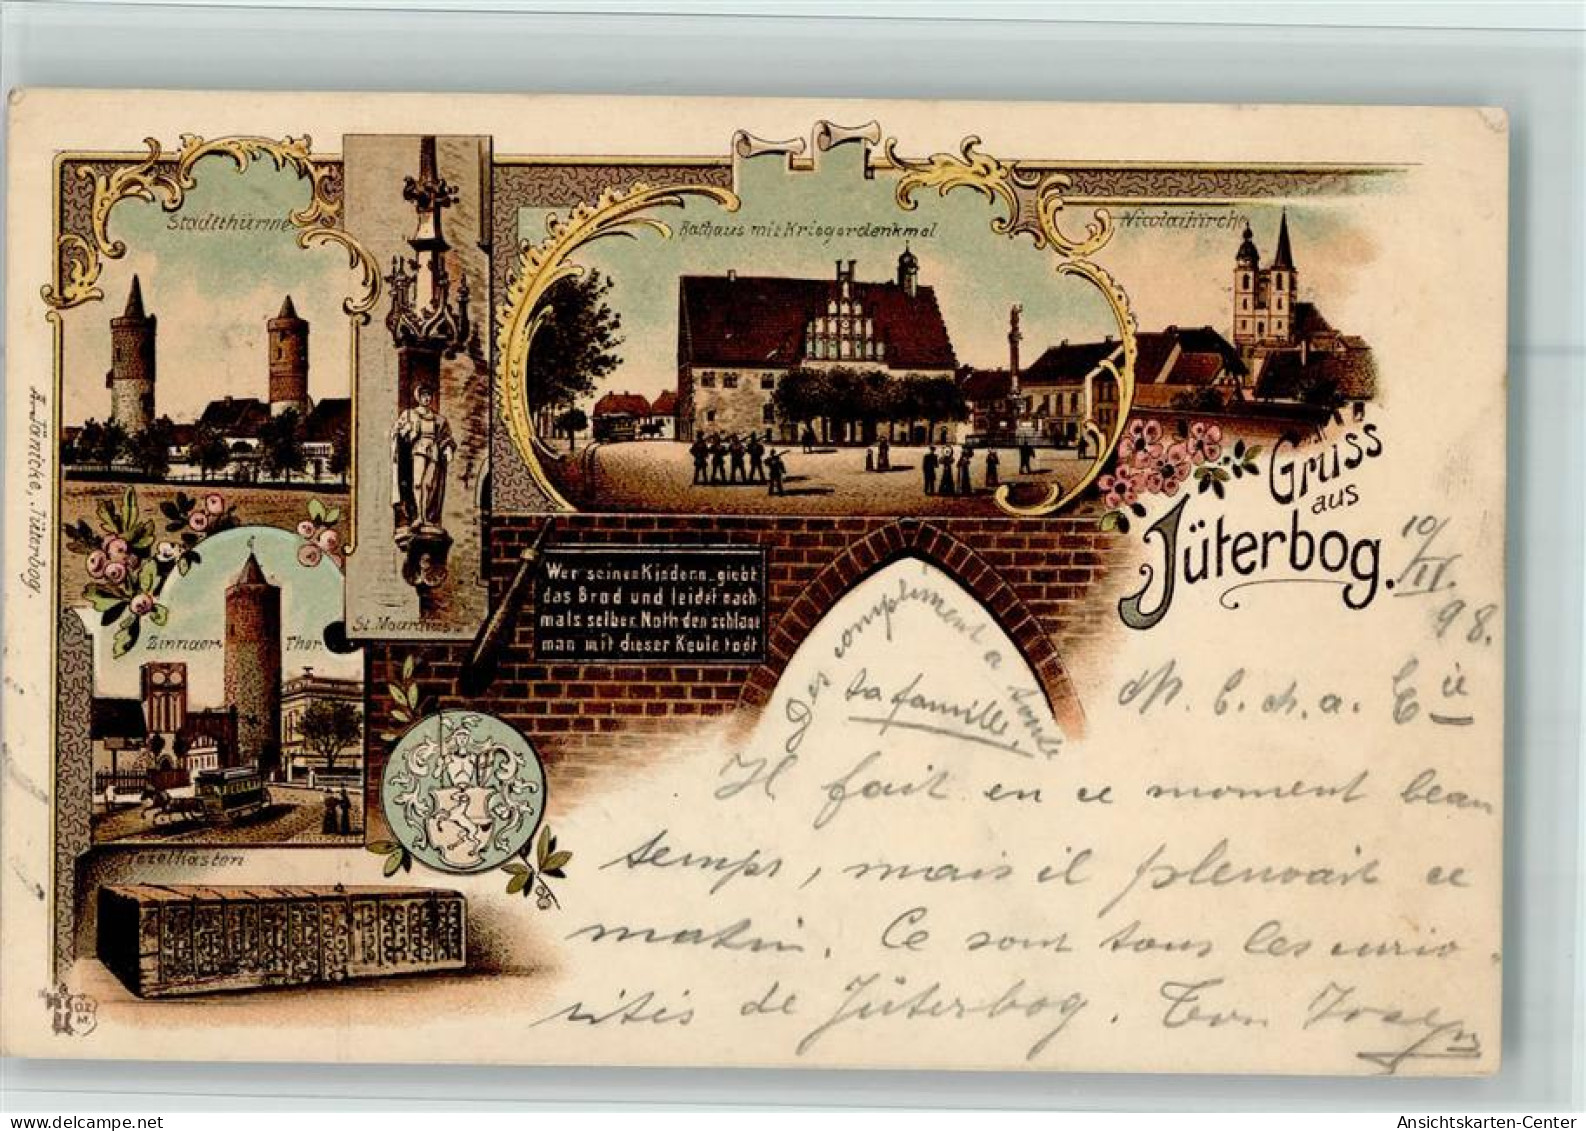 Stadtthürme
Rathaus mit Kriegerdenkmal
Nicolaikirche
Gruss
aus
Jüterbog.
10/
II.
98.
St. Mauritius
Wer seinen Kindern giebt
das Brod und leidet nach-
mals selber Noth den schlage
man mit dieser Keule todt
Zinnaer Thor.
Tezelkasten
A. Jänicke, Jüterbog.
Des compliment a toute
ta famille.
M. l. ch. a.
Il fait en ce moment beau
temps, mais il pleuvait ce
matin. Ce sont tous les curio-
sités de Jüterbog. Ton
Ansichtskarten-Center
delcampe.net
Ansichtskarten-Center